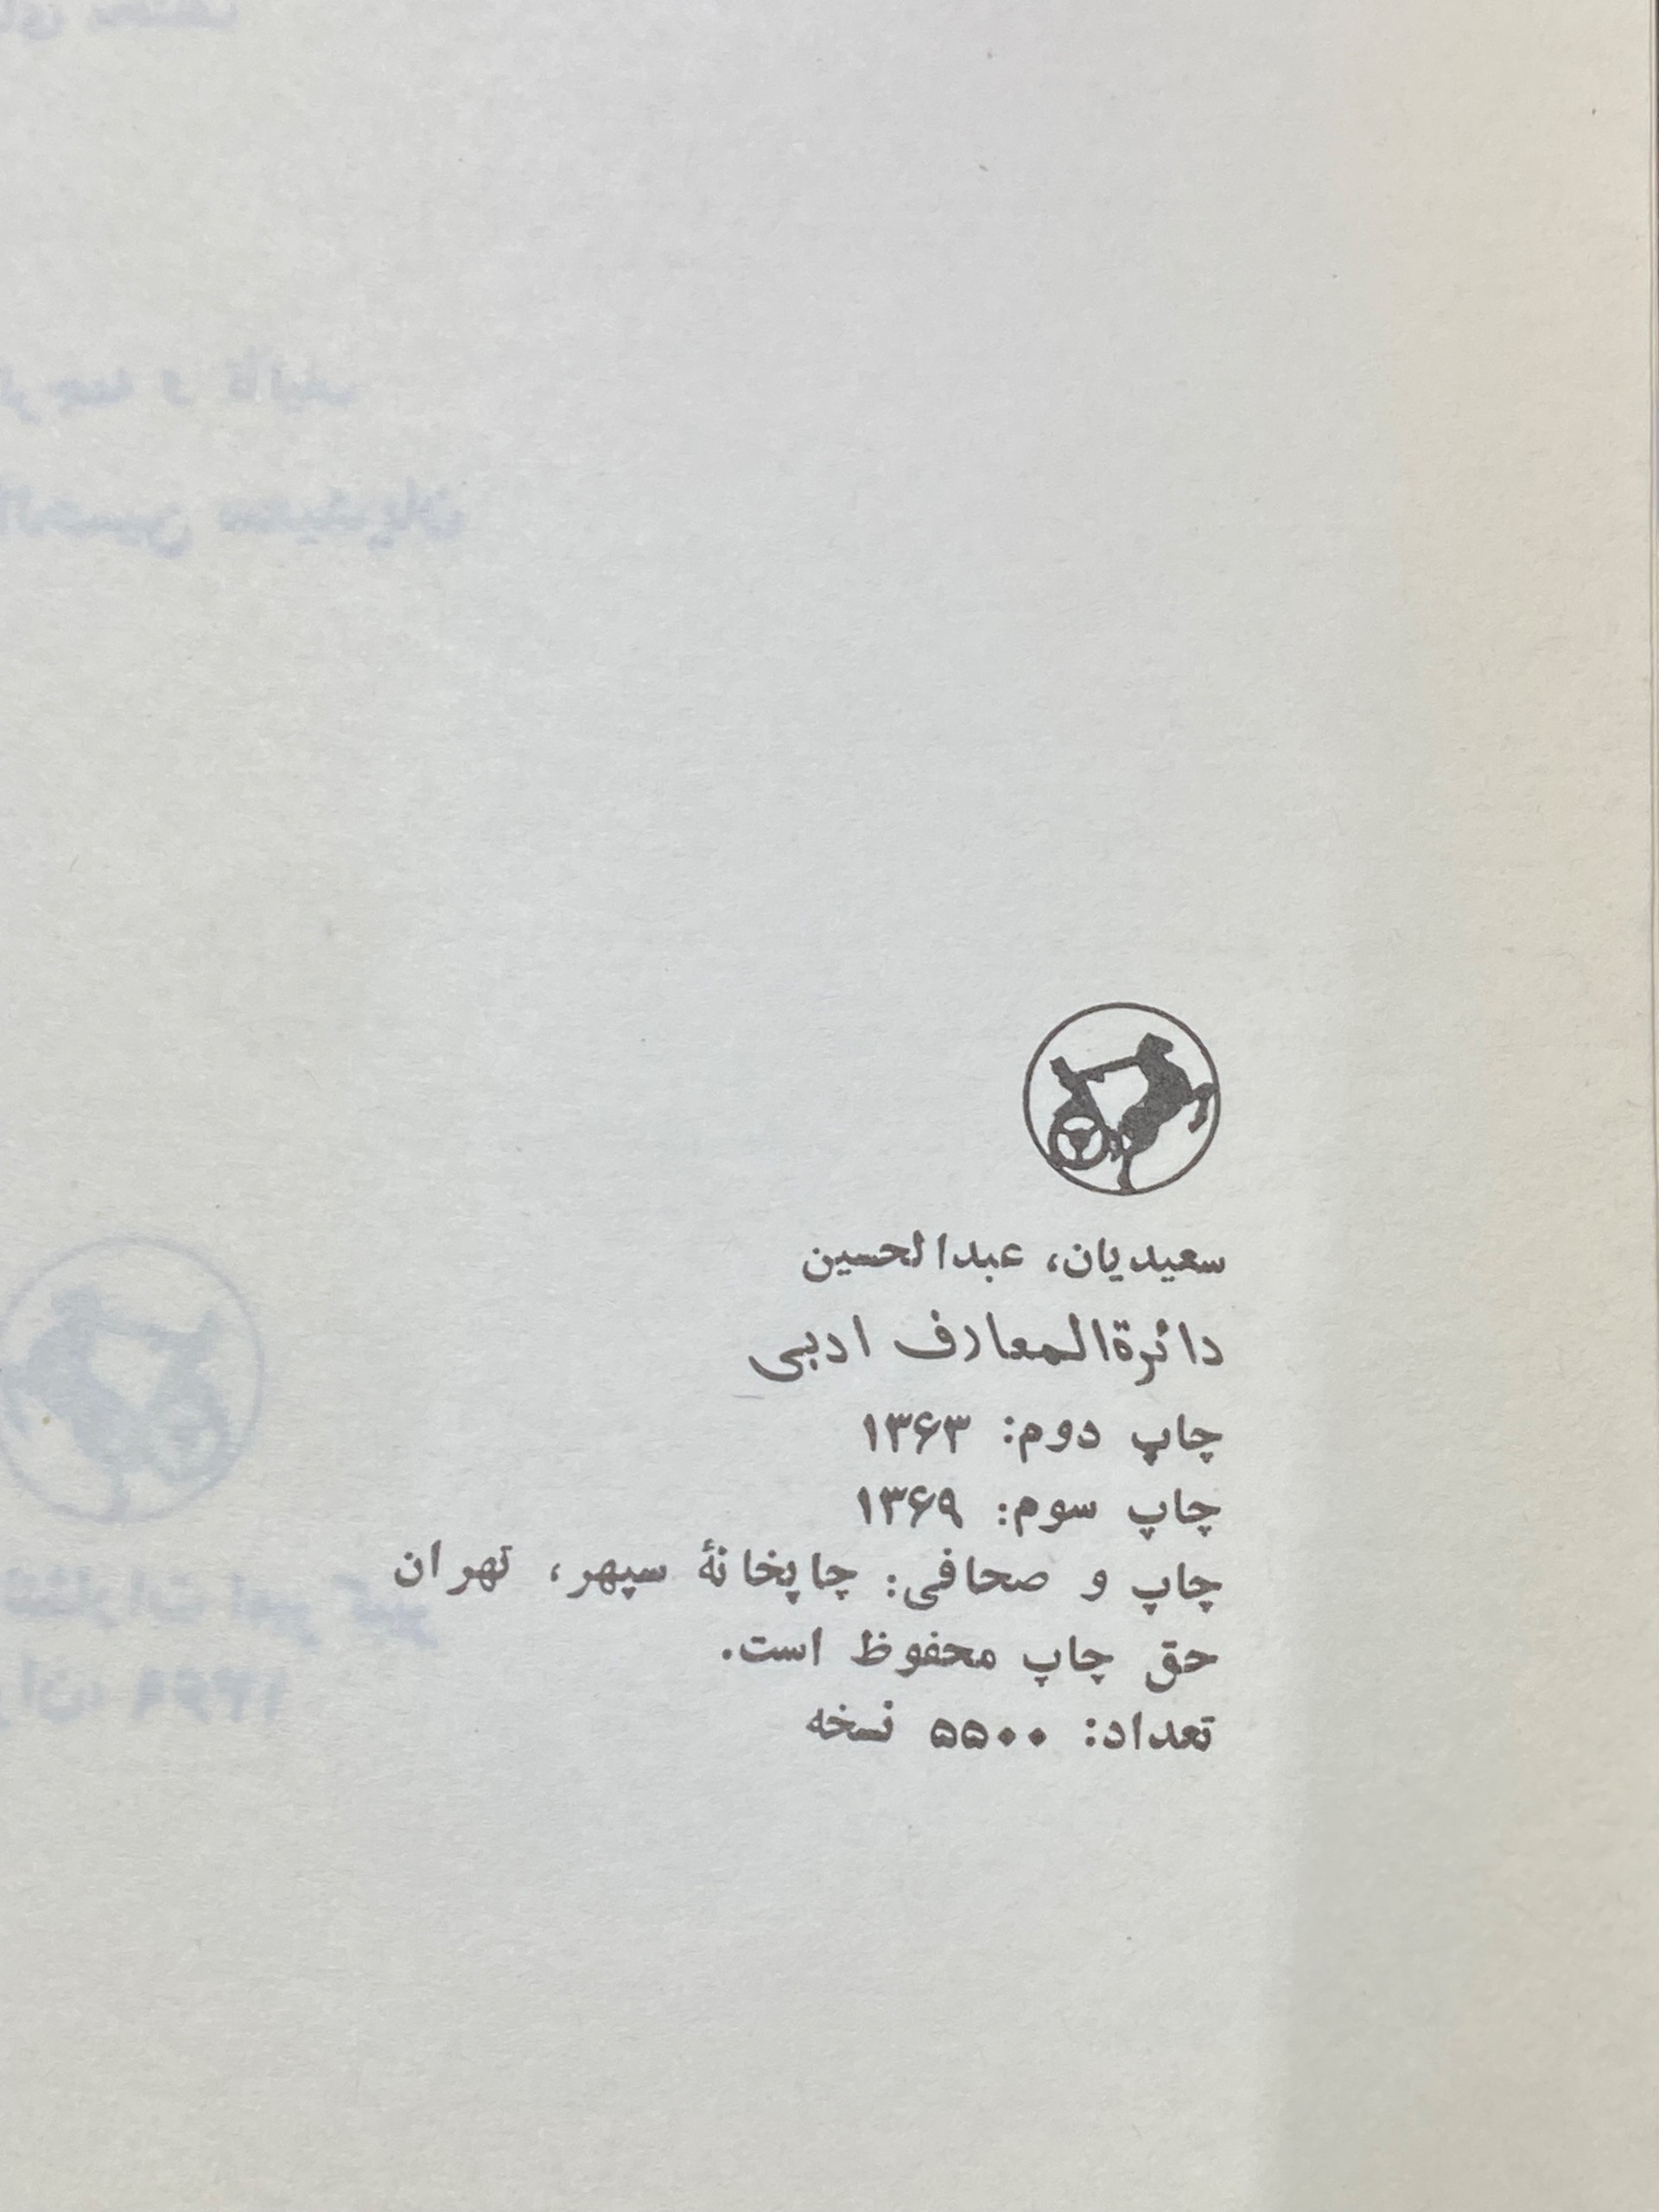 سعیدیان، عبدالحسین
دائرةالمعارف ادبی
چاپ دوم: ۱۳۶۳
چاپ سوم: ۱۳۶۹
چاپ و صحافی: چاپخانهٔ سپهر، تهران
حق چاپ محفوظ است.
تعداد: ۵۵۰۰ نسخه